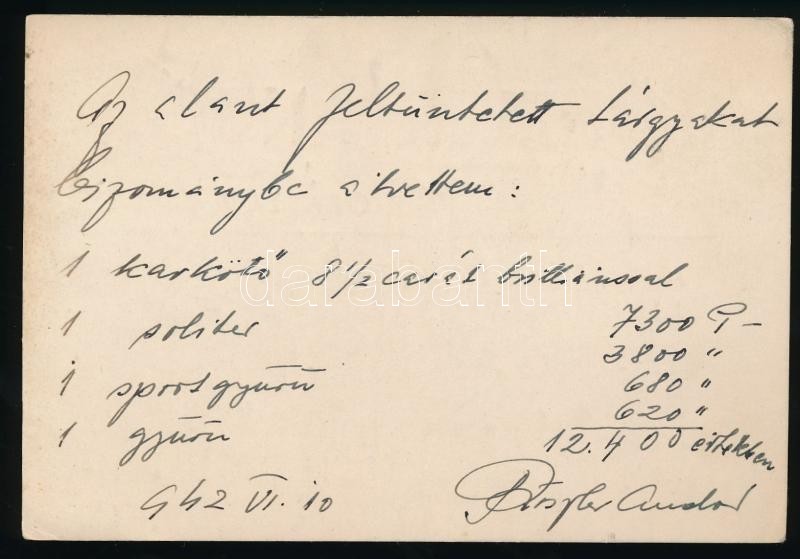 Az alant feltüntetett tárgyakat
bizományba átvettem:
1 karkötő 8 1/2 carát brilliánssal
7300 P–
1 soliter
3800 "
1 sportgyűrű
680 "
1 gyűrű
620 "
12.400 értékben
942 VI. 10
Andor
darabanth